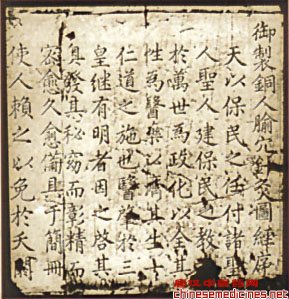 御製銅人腧穴鍼灸圖經序
天以保民之任付諸聖
人聖人建保民之教
於萬世爲政化以全其
性爲醫藥以濟其生一
仁道之施也醫肇於三
皇継有明者因之啓其
真發其秘窈而章精而
密愈久愈備具于簡冊
使人賴之以免於夭閼
chinesemednet.com